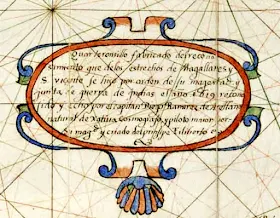 Quarteronsillo fabricado del reco
nocimiento que de los estrechos de Magallanes y
S. vicente se hiço por orden de su magestad y
junta de guerra de indias el año 1619 recono
sido y echo por el capitan Diego Ramirez de arellano
natural de Xativa cosmografo y piloto maior por
su magd y criado del principe filiberto